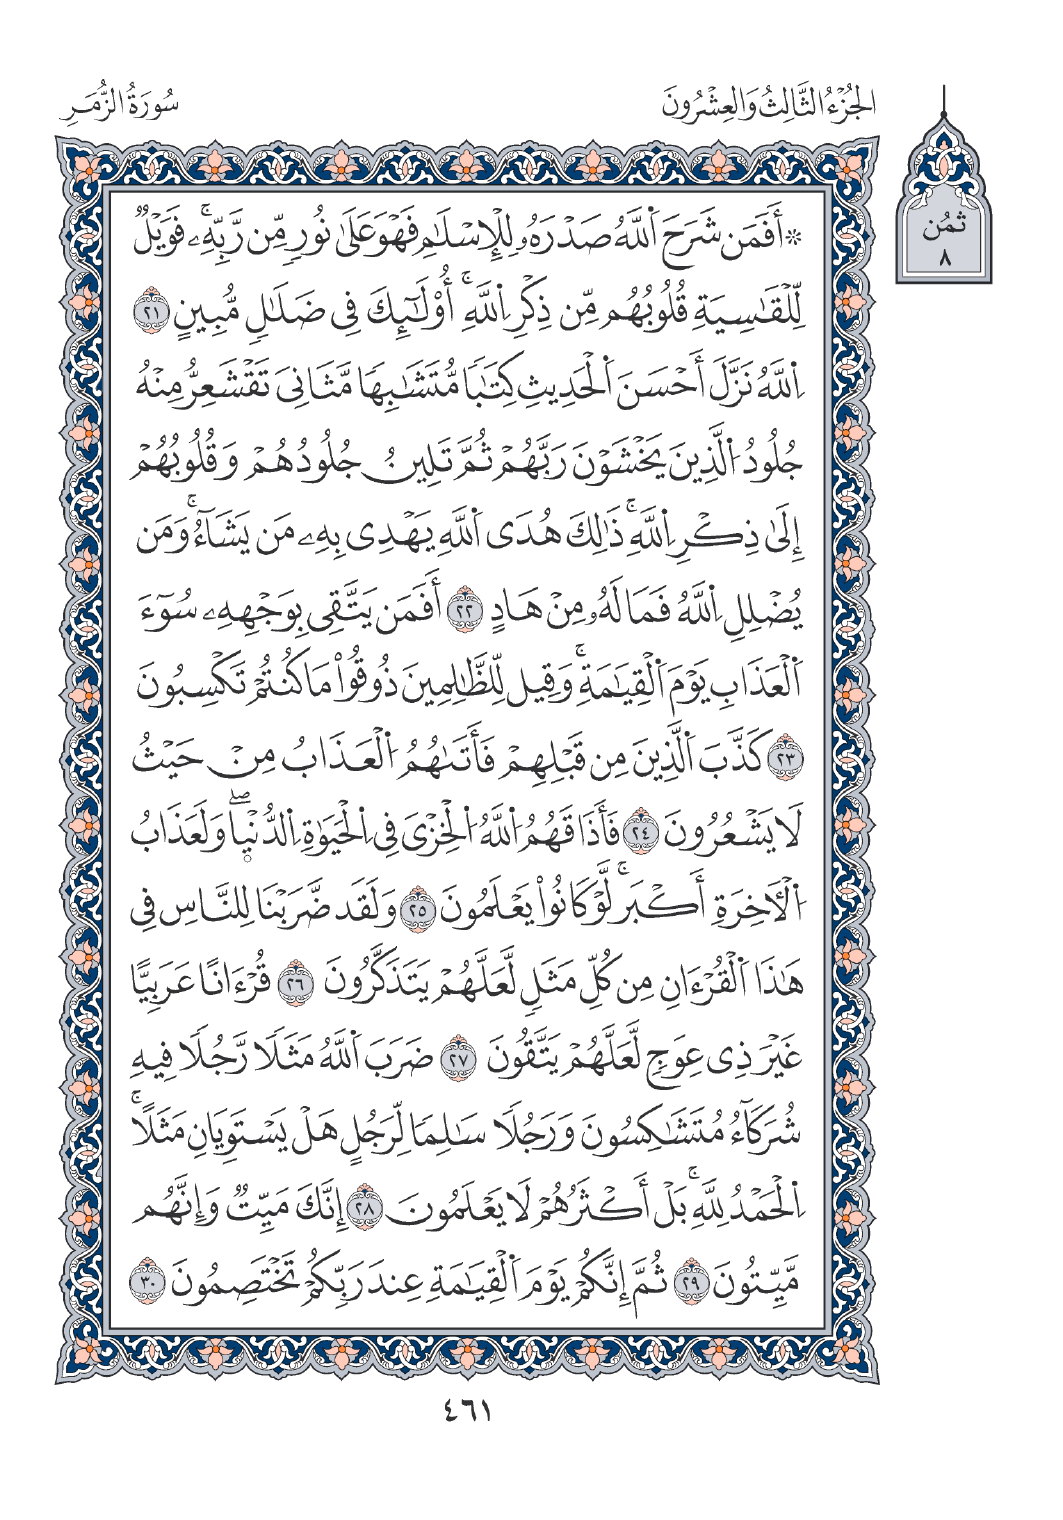 الجُزْءُ الثَّالِثُ وَالعِشْرُونَ
سُورَةُ الزُّمَرِ
ثمُن
٨
۞أَفَمَن شَرَحَ اَ۬للَّهُ صَدْرَهُۥ لِلْإِسْلَٰمِ فَهْوَ عَلَىٰ نُورٖ مِّن رَّبِّهِۦۚ فَوَيْلٞ
لِّلْقَٰسِيَةِ قُلُوبُهُم مِّن ذِكْرِ اِ۬للَّهِۚ أُوْلَٰٓئِكَ فِي ضَلَٰلٖ مُّبِينٍ ٢١
اِ۬للَّهُ نَزَّلَ أَحْسَنَ اَ۬لْحَدِيثِ كِتَٰبٗا مُّتَشَٰبِهٗا مَّثَانِيَ تَقْشَعِرُّ مِنْهُ
جُلُودُ اُ۬لَّذِينَ يَخْشَوْنَ رَبَّهُمْ ثُمَّ تَلِينُ جُلُودُهُمْ وَقُلُوبُهُمْ
إِلَىٰ ذِكْرِ اِ۬للَّهِۚ ذَٰلِكَ هُدَى اَ۬للَّهِ يَهْدِي بِهِۦ مَن يَشَآءُۚ وَمَن
يُضْلِلِ اِ۬للَّهُ فَمَا لَهُۥ مِنْ هَادٍ ٢٢ أَفَمَن يَتَّقِي بِوَجْهِهِۦ سُوٓءَ
اَ۬لْعَذَابِ يَوْمَ اَ۬لْقِيَٰمَةِۚ وَقِيلَ لِلظَّٰلِمِينَ ذُوقُواْ مَا كُنتُمْ تَكْسِبُونَ
٢٣ كَذَّبَ اَ۬لَّذِينَ مِن قَبْلِهِمْ فَأَتَىٰهُمُ اُ۬لْعَذَابُ مِنْ حَيْثُ
لَا يَشْعُرُونَ ٢٤ فَأَذَاقَهُمُ اُ۬للَّهُ اُ۬لْخِزْيَ فِي اِ۬لْحَيَوٰةِ اِ۬لدُّنْي۪اۖ وَلَعَذَابُ
اُ۬لْأٓخِرَةِ أَكْبَرُۚ لَوْ كَانُواْ يَعْلَمُونَ ٢٥ وَلَقَد ضَّرَبْنَا لِلنَّاسِ فِي
هَٰذَا اَ۬لْقُرْءَانِ مِن كُلِّ مَثَلٖ لَّعَلَّهُمْ يَتَذَكَّرُونَ ٢٦ قُرْءَانًا عَرَبِيًّا
غَيْرَ ذِي عِوَجٖ لَّعَلَّهُمْ يَتَّقُونَ ٢٧ ضَرَبَ اَ۬للَّهُ مَثَلٗا رَّجُلٗا فِيهِ
شُرَكَآءُ مُتَشَٰكِسُونَ وَرَجُلٗا سَٰلِمٗا لِّرَجُلٍ هَلْ يَسْتَوِيَانِ مَثَلًاۚ
اِ۬لْحَمْدُ لِلَّهِۚ بَلْ أَكْثَرُهُمْ لَا يَعْلَمُونَ ٢٨ إِنَّكَ مَيِّتٞ وَإِنَّهُم
مَّيِّتُونَ ٢٩ ثُمَّ إِنَّكُمْ يَوْمَ اَ۬لْقِيَٰمَةِ عِندَ رَبِّكُمْ تَخْتَصِمُونَ ٣٠
٤٦١